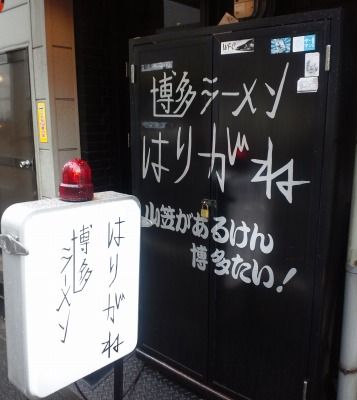 博多ラーメン
はりがね
山笠があるけん
博多たい!
はりがね
博多ラーメン